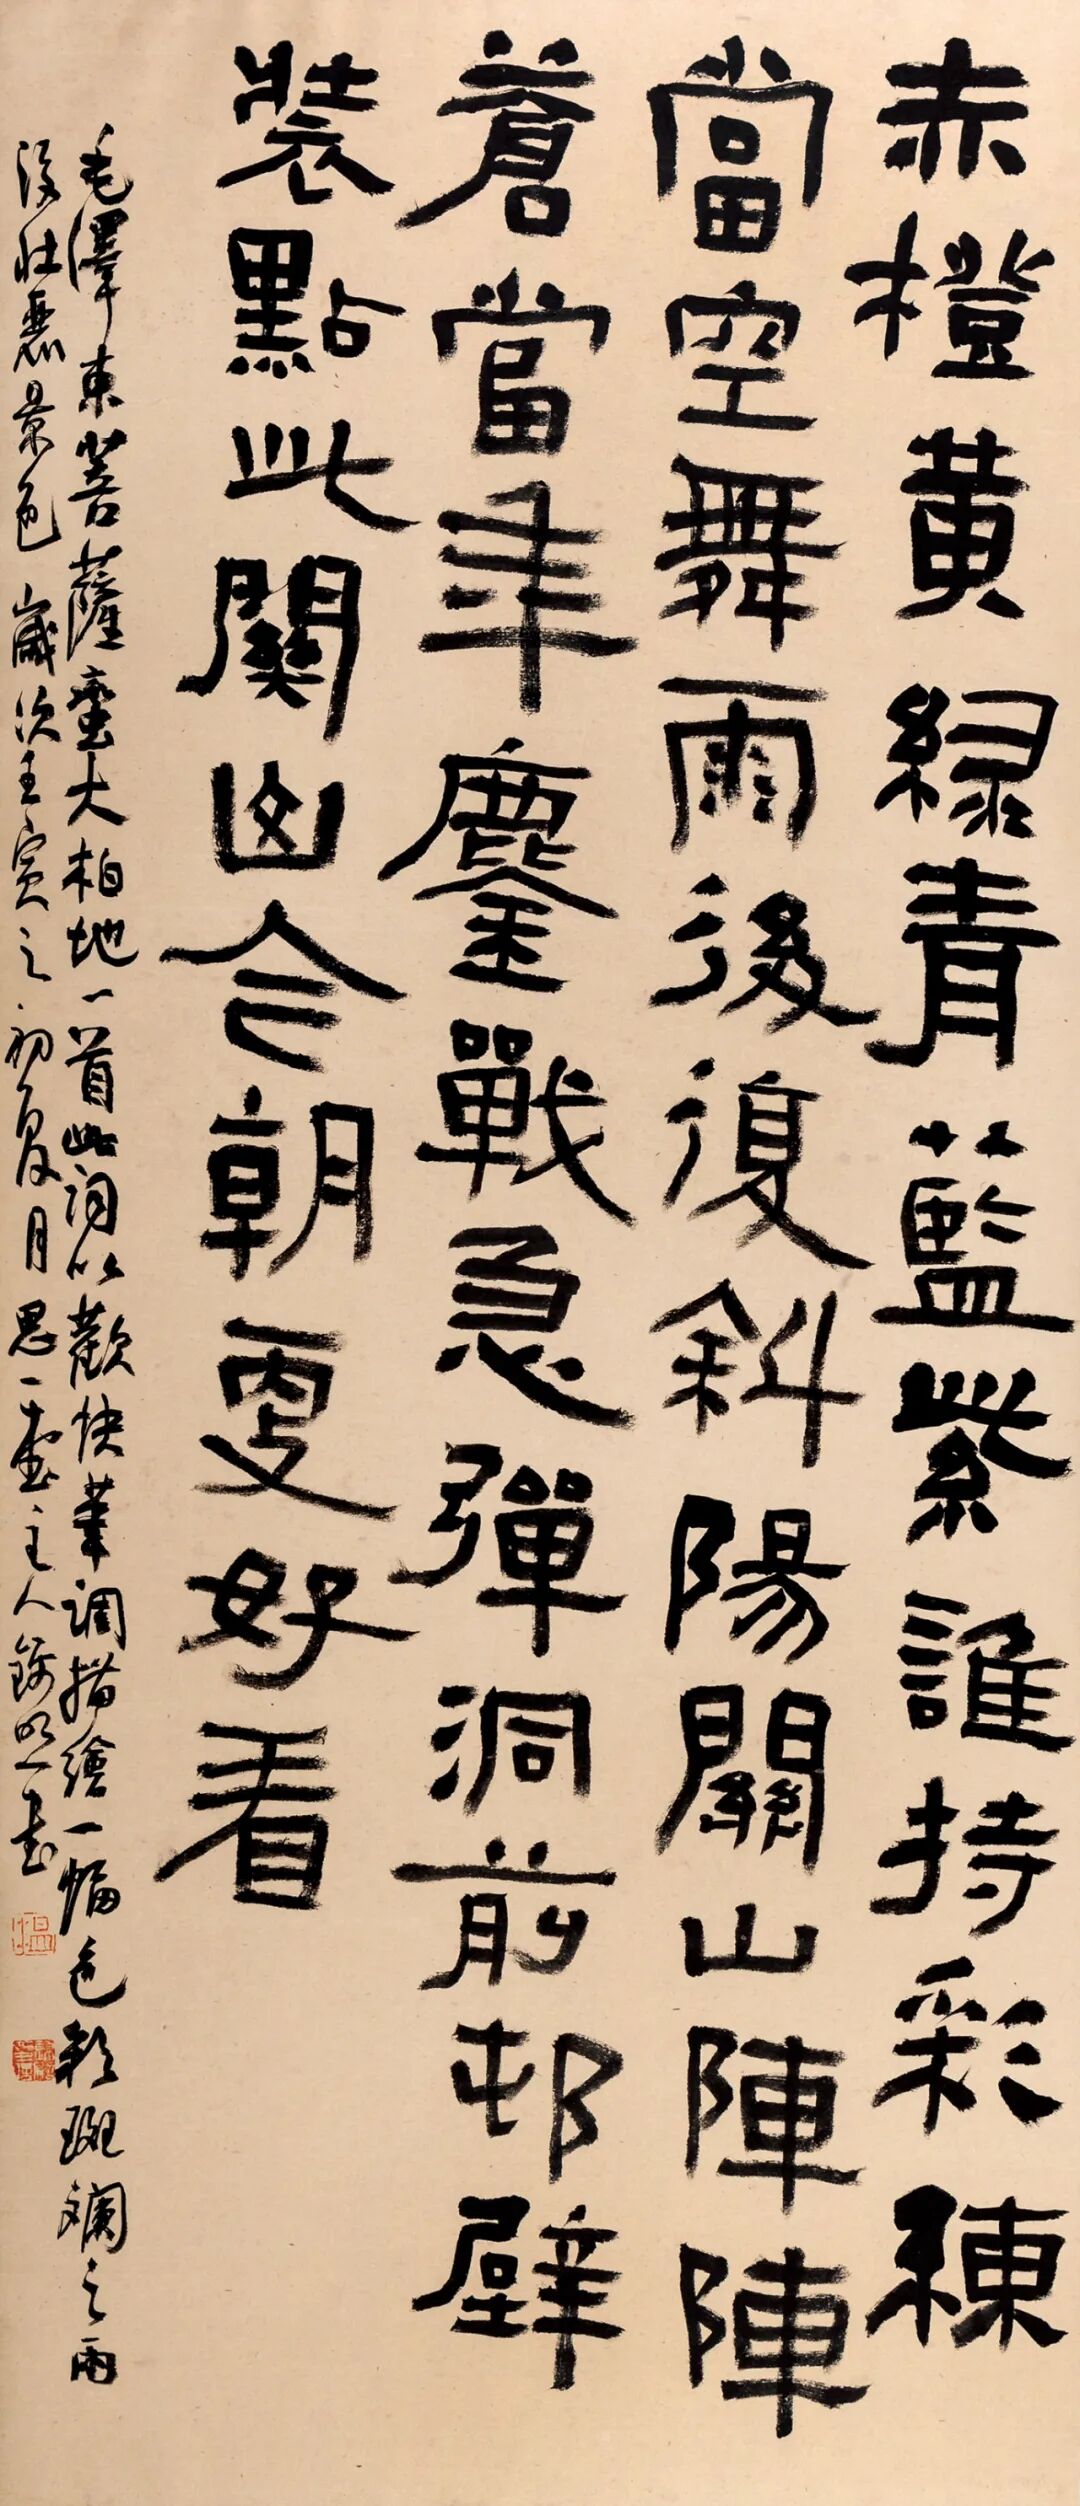 赤橙黄緑青藍紫誰持彩練
當空舞雨後復斜陽關山陣陣
蒼當年鏖戰急彈洞前邨壁
裝點此關山今朝更好看
毛澤東菩薩蠻大柏地一首此詞以歡快筆調描繪一幅色彩斑斕之雨
後壯麗景色歲次壬寅之初夏月思一主人書